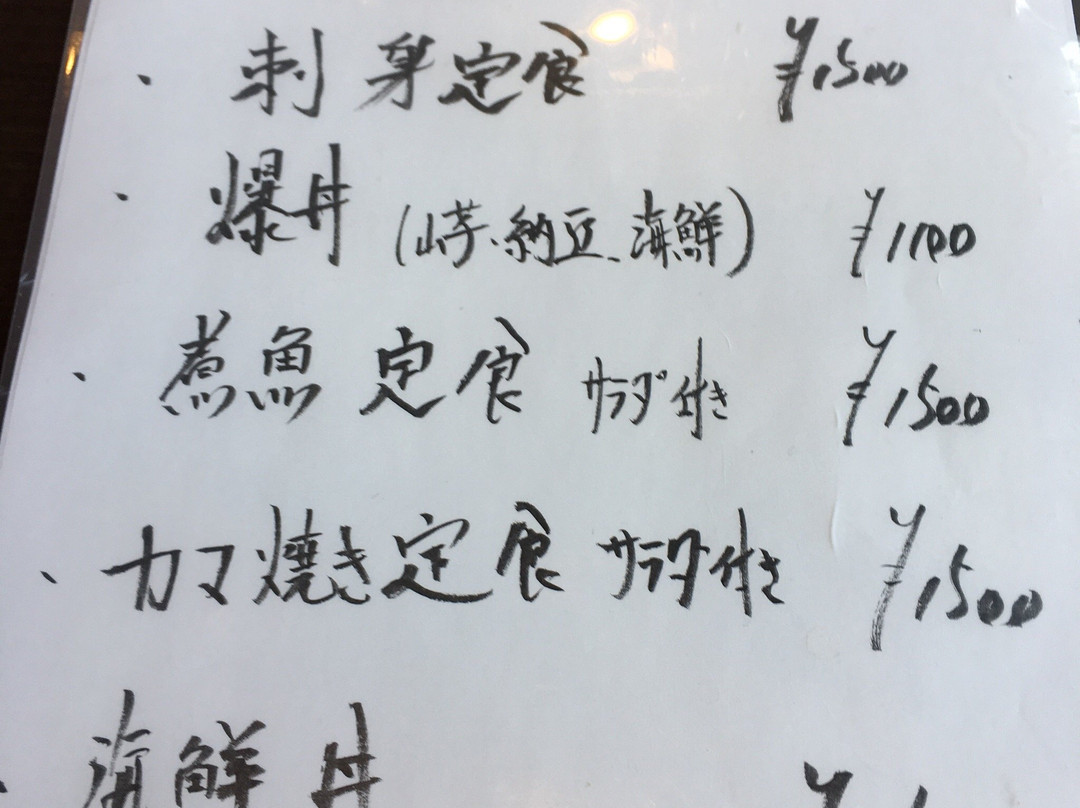 ・刺身定食 ¥1500
・爆丼(山芋、納豆、海鮮) ¥1100
・煮魚定食 サラダ付き ¥1500
・カマ焼き定食 サラダ付き ¥1500
・海鮮丼 ¥1